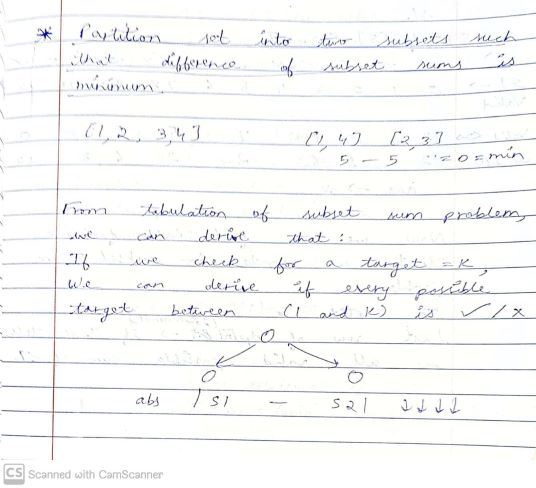 * Partition set into two subsets such
that difference of subset sums is
minimum.
[1, 2, 3, 4] [1, 4] [2, 3]
5 - 5 = 0 = min
From tabulation of subset sum problem,
we can derive that :
If we check for a target = K,
We can derive if every possible
target between (1 and K) is ✓ / x
abs | s1 - s2 | ↓↓↓↓
CS Scanned with CamScanner